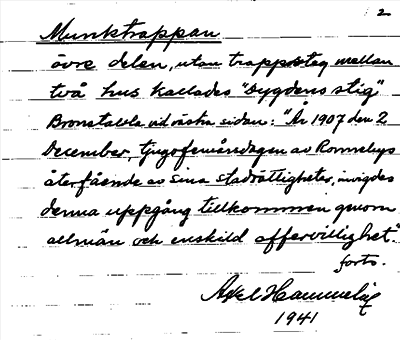 2
Munktrappan
övre delen, utan trappsteg mellan
två hus kallades "Dygdens stig"
Bronstavla vid västra sidan: "År 1907 den 2
December, tjugofemårsdagen av Ronnebys
återfående av sina stadsrättigheter, invigdes
denna uppgång tillkommen genom
allmän och enskild offervillighet".
forts.
Axel
1941